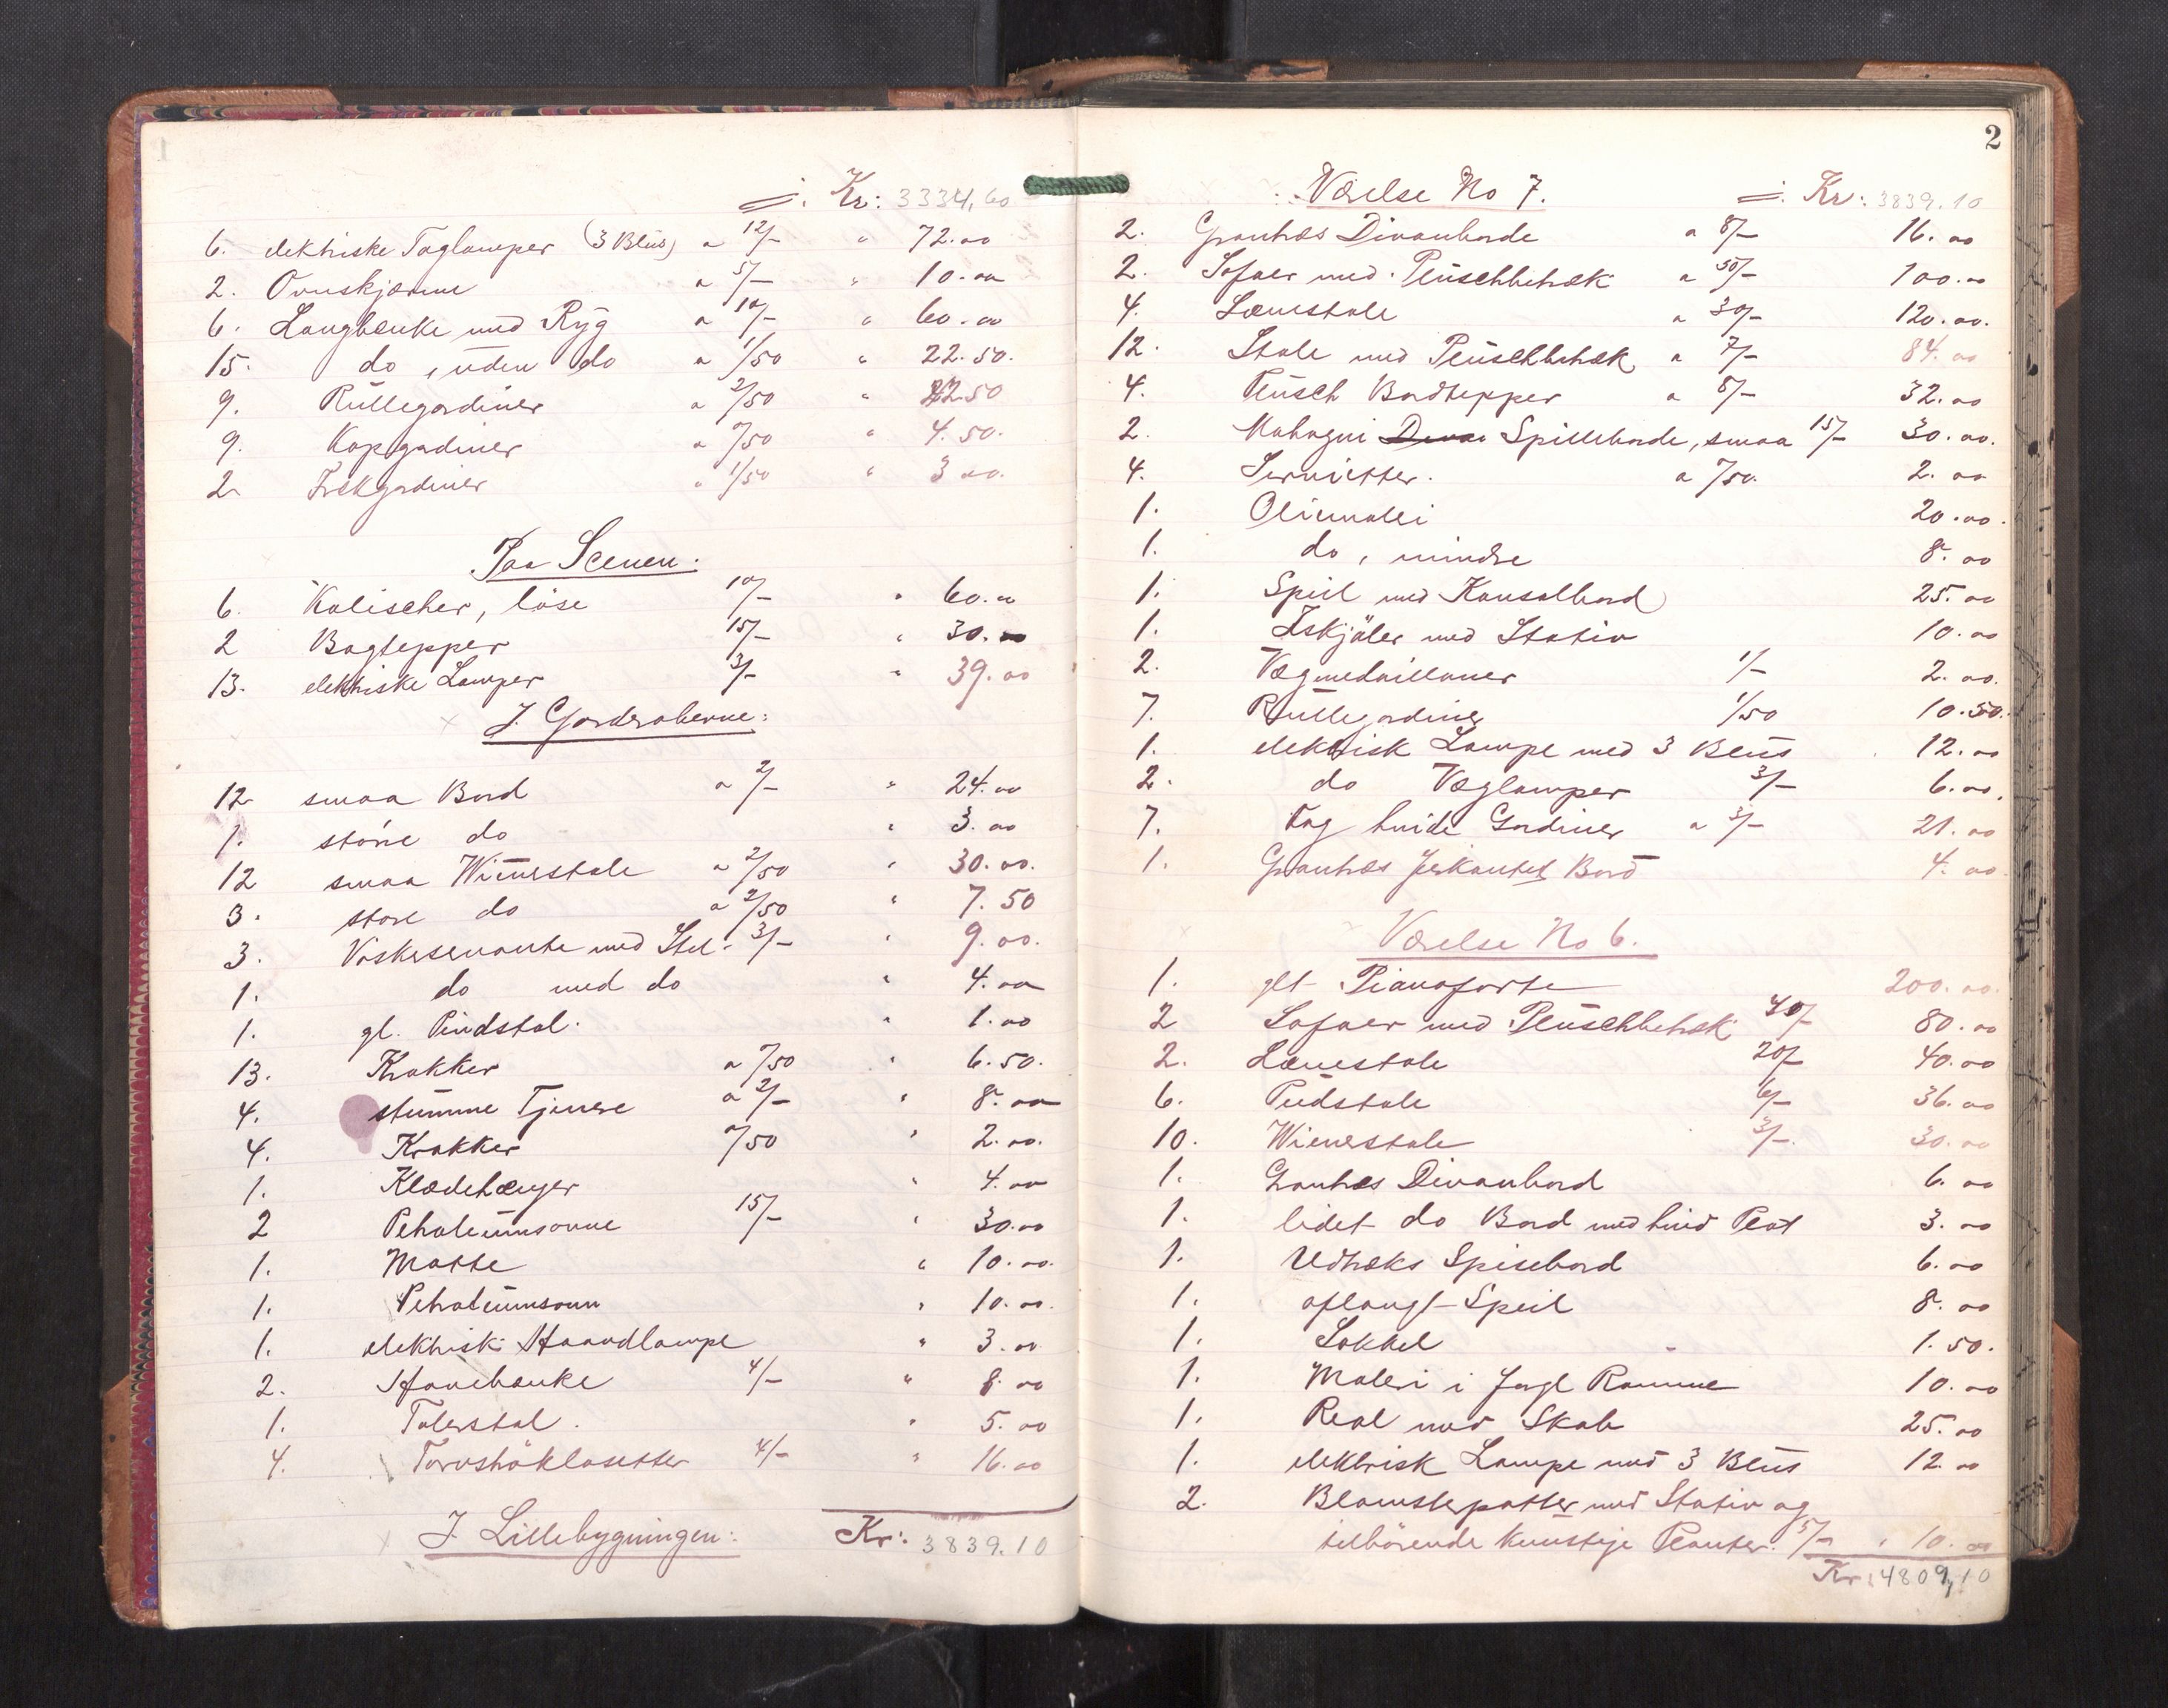 =. Kr: 3334,60
6. elektriske Taglamper (3 Blus) a 12/- " 72.00
2. Ovnskjærme a 5/- " 10.00
6. Langbænke med Ryg a 10/- " 60.00
15. do, uden do a 1/50 " 22.50.
9. Rullegardiner a 2/50 " 22.50
9. Kapgardiner a "/50 " 4.50.
2 Trækgardiner a 1/50 " 3.00.
Paa Scenen:
6. Kulischer, løse 10/- " 60.00
2 Bagtepper 15/- " 30.00
13. elektriske Lamper 3/- " 39.00
I Garderoberne:
12 smaa Bord a 2/- " 24.00
1. større do " 3.00
12 smaa Wienerstole a 2/50 " 30.00.
3. store do a 2/50 " 7.50
3. Vaskeservante med Stel. 3/- " 9.00.
1. do med do " 4.00
1. gl. Pindstol. " 1.00
13. Krakker a "/50 " 6.50.
4. stumme Tjenere a 2/- " 8.00
4. Krakker "/50 " 2.00.
1. Klædehænger " 4.00
2 Petroleumsovne 15/- " 30.00
1. Matte " 10.00.
1. Petroleumsovn " 10.00.
1. elektrisk Haandlampe " 3.00
2. Havebænke 4/- " 8.00
1. Talerstol. " 5.00
4. Torvströklosetter 4/- " 16.00
I Lillebygningen: Kr: 3839.10
2
Værelse No 7. =. Kr: 3839.10
2. Grantræs Divanborde a 8/- 16.00
2. Sofaer med Plüschbetræk a 50/- 100.00
4. Lænestole a 30/- 120.00.
12. Stole med Plüschbetræk a 7/- 84.00
4. Plüsch Bordtepper a 8/- 32.00
2. Mahogni Spilleborde, smaa 15/- 30.00.
4. Servietter. a "/50. 2.00
1. Oliemaleri 20.00.
1. do, mindre 8.00
1. Speil med Konsolbord 25.00
1. Iskjöler med Stativ 10.00
2. Vægmedailloner 1/- 2.00.
7. Rullegardiner 1/50 10.50.
1. elektrisk Lampe med 3 Blus 12.00
2. do Væglamper 3/- 6.00.
7. Fag hvide Gardiner a 3/- 21.00
1. Grantræs firkantet Bord 4.00
Værelse No 6.
1. glt Pianoforte 200.00.
2 Sofaer med Plüschbetræk 40/- 80.00
2. Lænestole 20/- 40.00
6. Pudstole 6/- 36.00
10. Wienerstole 3/-. 30.00
1. Grantræs Divanbord 6.00
1. lidet do Bord med hvid Plat 3.00
1. Udtræks Spisebord 6.00
1. aflangt Speil 8.00
1. Sokkel 1.50.
1. Maleri i forgl Ramme 10.00
1. Reol med Skab 25.00
1. elektrisk Lampe med 3 Blus 12.00
2. Blomsterpotter med Stativ og
tilhörende kunstige Planter. 5/- " 10.00
Kr: 4809,10